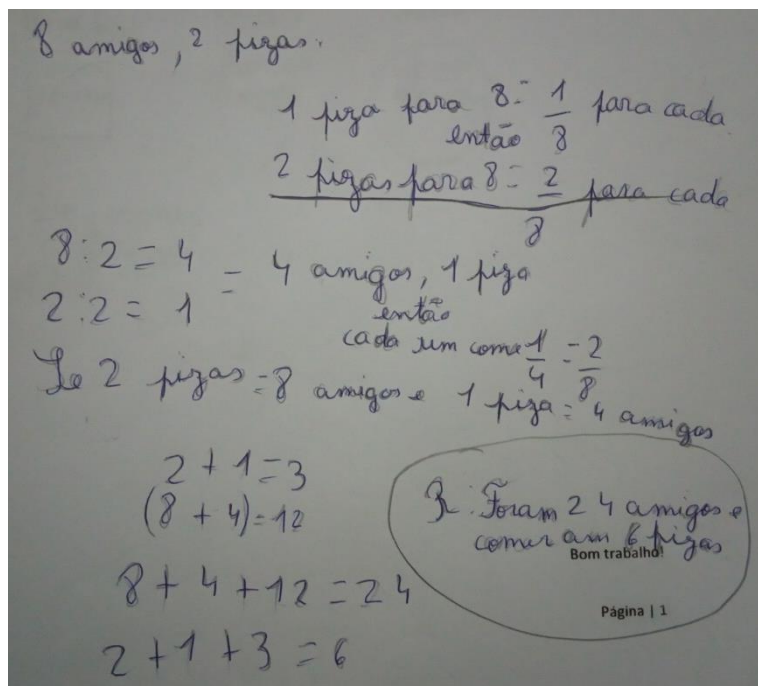 8 amigos, 2 pizas.
1 piza para 8 = 1/8 para cada
então
2 pizas para 8 = 2/8 para cada
8 : 2 = 4
2 : 2 = 1
= 4 amigos, 1 piza
então
cada um come 1/4 = 2/8
Se 2 pizas = 8 amigos e 1 piza = 4 amigos
2 + 1 = 3
(8 + 4) = 12
8 + 4 + 12 = 24
2 + 1 + 3 = 6
R: Foram 24 amigos e
comeram 6 pizas
Bom trabalho!
Página | 1